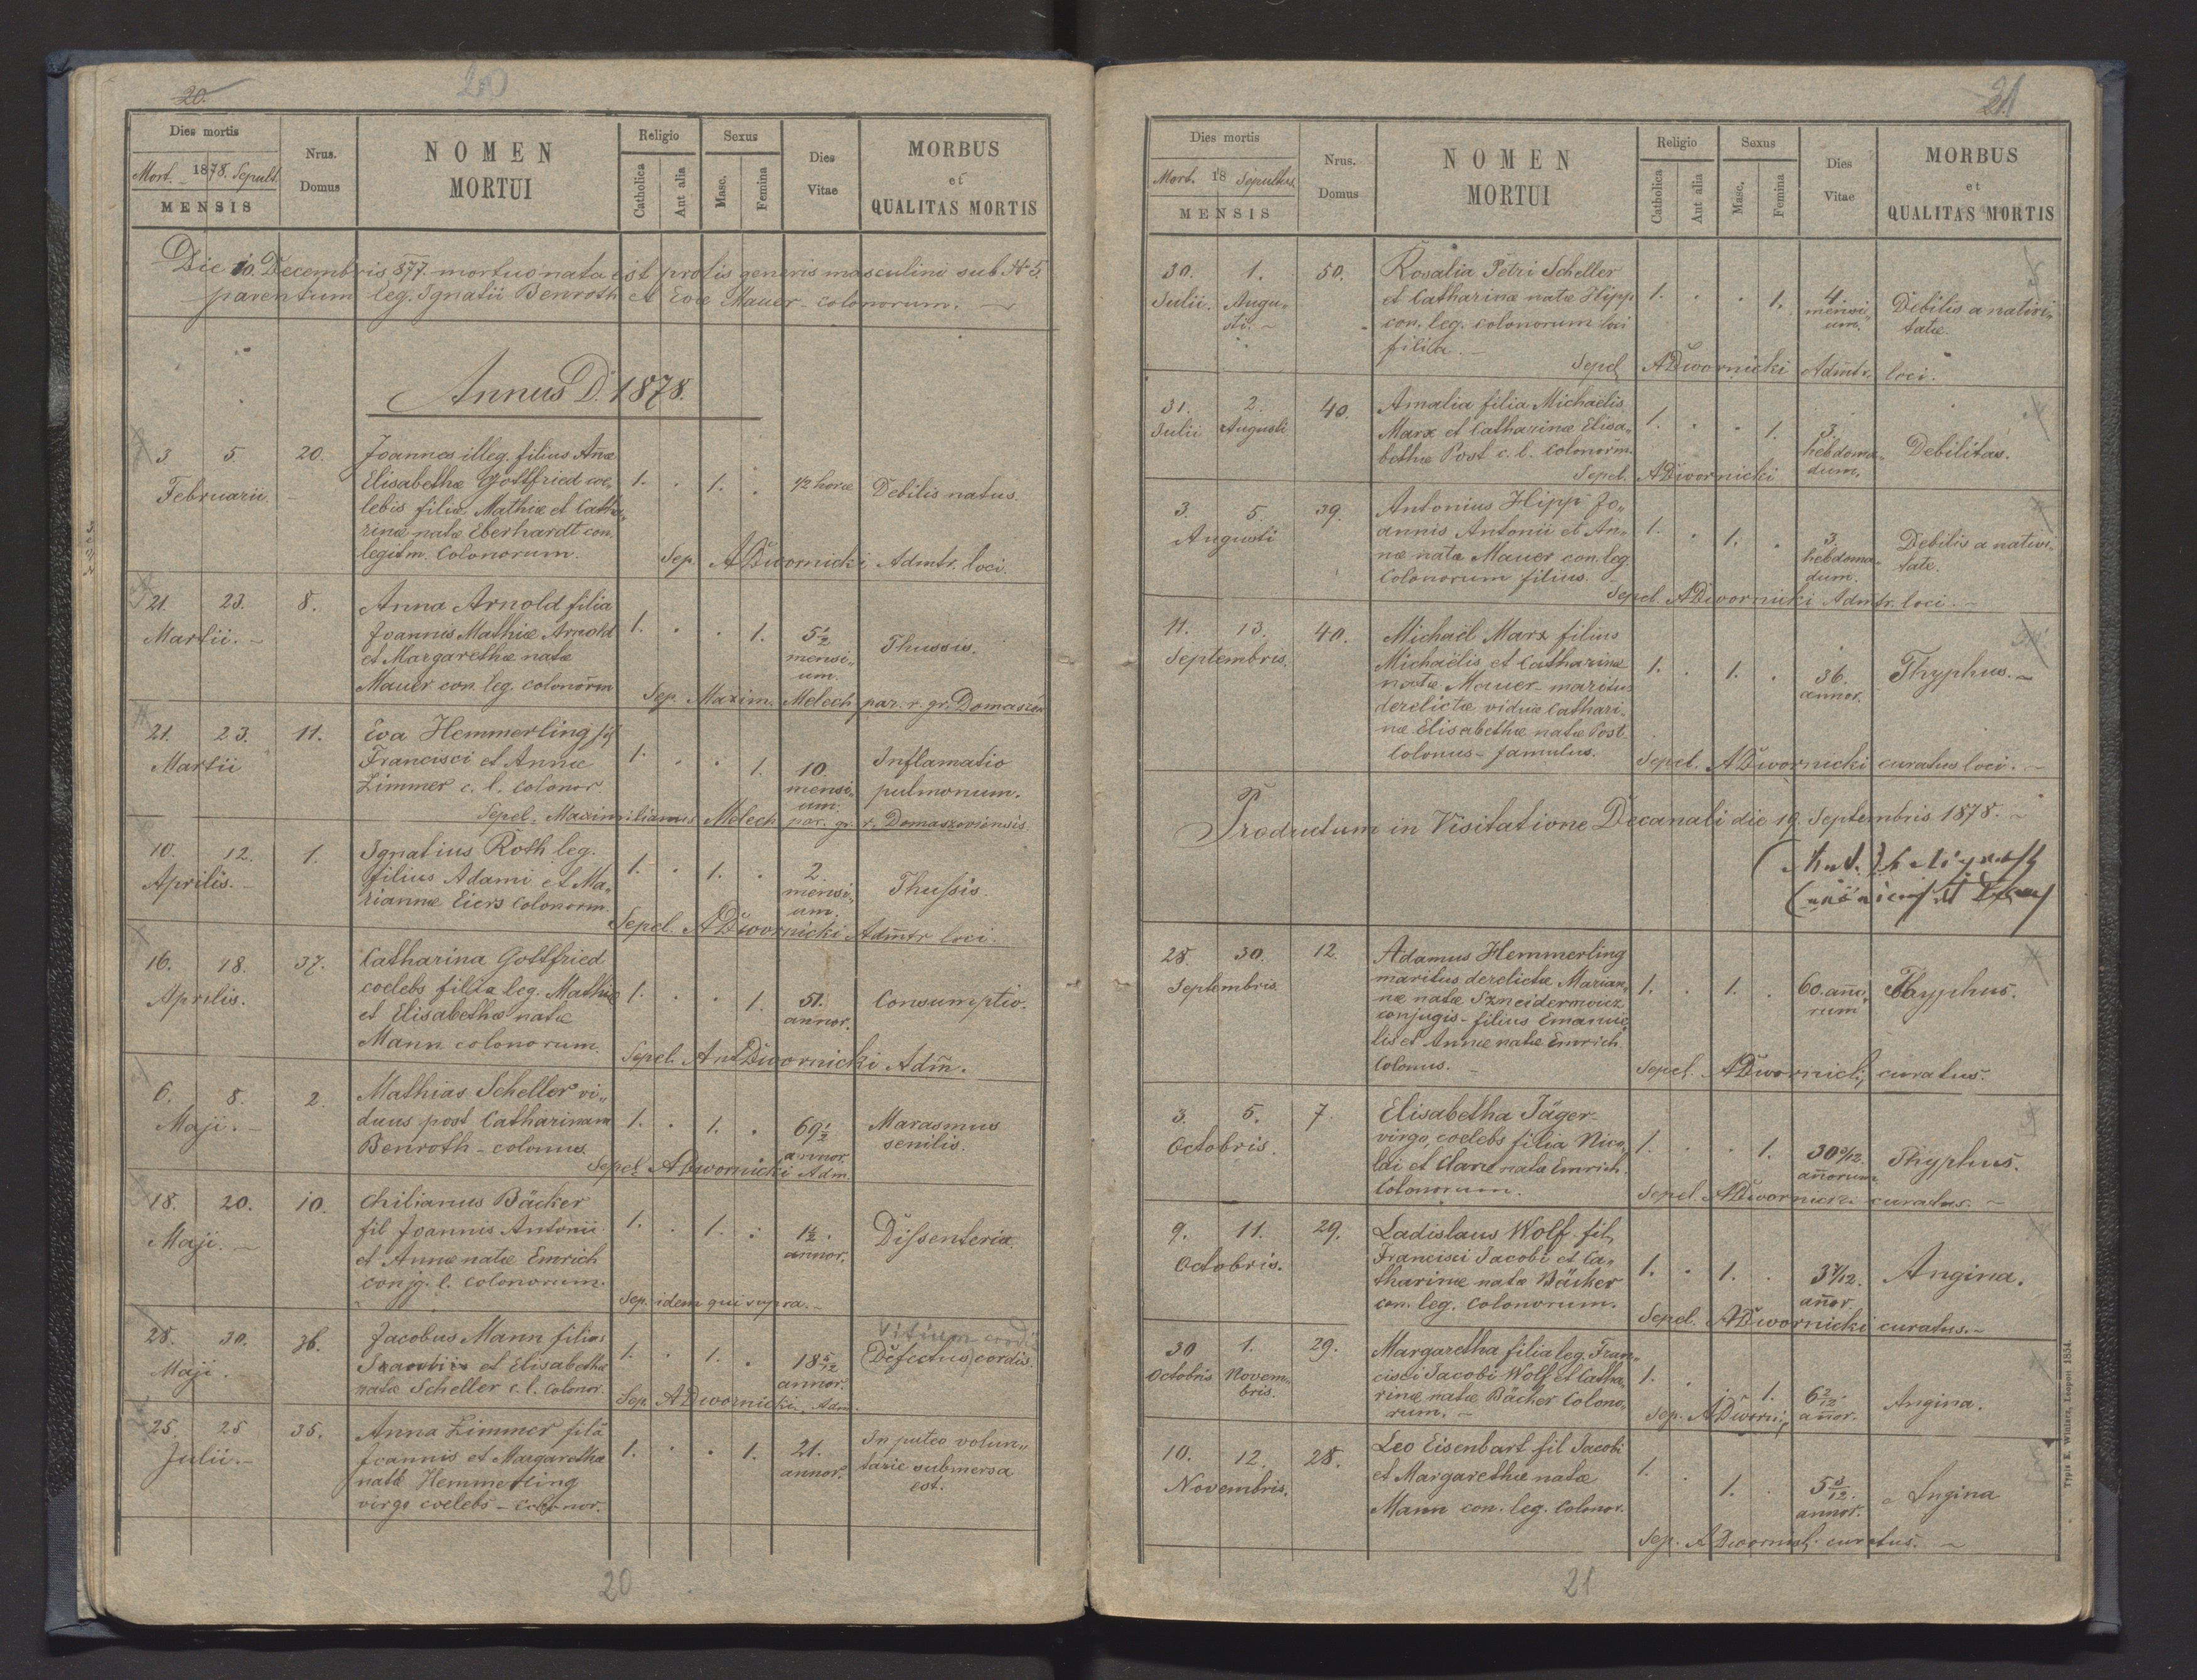 20.
20
Dies mortis
Mort. 1878. Sepult.
MENSIS
Nrus.
Domus
NOMEN
MORTUI
Religio
Catholica
Aut alia
Sexus
Masc.
Femina
Dies
Vitae
MORBUS
et
QUALITAS MORTIS
Die 10. Decembris 877. mortuo nata est prolis generis masculini sub N 5.
parentum leg. Ignatii Benroth et Evae Mauer - colonorum. -
Annus D. 1878.
3 5. 20.
Februarii.
Joannes illeg. filius Annæ
Elisabethæ Gottfried cœ,,
lebis filiæ Mathiæ et Catha,,
rinæ natæ Eberhardt con.
legitm. Colonorum.
1. . 1. .
1/2 horæ
Debilis natus.
Sep. ADwornicki Admtr. loci.
21. 23. 8.
Martii. -
Anna Arnold filia
Joannis Mathiæ Arnold
et Margarethæ natæ
Mauer con. leg. colonorm
1. . . 1.
5 1/2
mensi,,
um.
Thussis.
Sep. Maxim. Melech par. r. gr. Domaszów
21. 23. 11.
Martii
Eva Hemmerling fil
Francisci et Annæ
Zimmer c. l. Colonor.
1. . . 1.
10.
mensi,,
um
Inflamatio
pulmonum.
Sepel. Maximilianus Melech par. gr. r. Domaszoviensis.
10. 12. 1.
Aprilis. -
Ignatius Roth leg.
filius Adami et Ma,,
riannæ Eiers Colonorm.
1. . 1. .
2.
mensi,,
um.
Thussis.
Sepel. ADwornicki Admtr loci.
16. 18. 37.
Aprilis.
Catharina Gottfried
coelebs filia leg. Mathiæ
et Elisabethæ natæ
Mann colonorum.
1. . . 1.
51.
annor.
Consumptio.
Sepel. Ant Dwornicki Adm.
6. 8. 2.
Maji. -
Mathias Scheller vi,,
duus post Catharinam
Benroth - colonus.
1. . 1. .
69 1/2
annor.
Marasmus
senilis.
Sepel ADwornicki Adm.
18. 20. 10.
Maji. -
Chilianus Bäcker
fil Joannis Antonii
et Annæ natæ Emrich
conjg. l. Colonorum.
1. . 1. .
1 1/2.
annor.
Dissenteria.
Sep. idem qui supra. -
28. 30. 36.
Maji.
Jacobus Mann filius
et Elisabethæ
natæ Scheller c. l. Colonor.
1. . 1. .
18 5/12
annor.
Vitium cordis
(Defectus) cordis.
Sep. ADwornicki, Adm.
25. 25 35.
Julii. -
Anna Zimmer filia
Joannis et Margarethæ
natæ Hemmerling
virgo coelebs - Colonor.
1. . . 1.
21.
annor.
In puteo volun,,
tarie submersa
est.
20
21
Dies mortis
Mort. 18 Sepultus
MENSIS
Nrus.
Domus
NOMEN
MORTUI
Religio
Catholica
Aut alia
Sexus
Masc.
Femina
Dies
Vitae
MORBUS
et
QUALITAS MORTIS
30. 1. 50.
Julii. Augu,,
sti. -
Rosalia Petri Scheller
et Catharinæ natæ Hipp
con. leg. colonorum loci
filia. -
1. . . 1.
4
mensi
um.
Debilis a nativi,,
tate.
Sepel ADwornicki Admtr. loci.
31. 2. 40.
Julii Augusti
Amalia filia Michaelis
Marx et Catharinæ Elisa,,
bethæ Post c. l. Colonorm.
1. . . 1.
3.
hebdoma,,
dum.
Debilitas.
Sepel. ADwornicki
3. 5. 39.
Augusti
Antonius Hipp Jo,,
annis Antonii et An,,
næ nata Mauer con. leg.
Colonorum filius.
1. . 1. .
3.
hebdoma,,
dum.
Debilis a nativi,,
tate.
Sepel. ADwornicki Admtr. loci. -
11. 13. 40.
Septembris.
Michaël Marx filius
Michaëlis et Catharinæ
natæ Mauer - maritus
derelictæ viduæ Cathari,,
næ Elisabethæ natæ Post.
Colonus - famulus.
1. . 1. .
36.
annor.
Thyphus. -
Sepel. ADwornicki curatus loci. -
Productum in Visitatione Decanali die 19. Septembris 1878. -
28. 30. 12.
Septembris.
Adamus Hemmerling
maritus derelictæ Marian,,
næ natæ Szneiderowicz
conjugis - filius Emanue,,
lis et Annæ natæ Emrich.
Colonus. -
1. . 1. .
60. anno,,
rum
Thyphus.
Sepel. ADwornicki curatus.
3. 5. 7.
Octobris.
Elisabetha Jäger
virgo, coelebs filia Nico,,
lai et Claræ natæ Emrich.
Colonorum.
1. . . 1.
annorum
Thyphus.
Sepel. ADwornicki curatus. -
9. 11. 29.
Octobris.
Ladislaus Wolf fil,
Francisci Jacobi et Ca,,
tharinæ natæ Bäcker
con. leg. Colonorum.
1. . 1. .
annor
Angina.
Sepel. ADwornicki curatus. -
30 1. 29.
Octobris Novem,,
bris.
Margaretha filia leg. Fran,,
cisci Jacobi Wolf et Catha,,
rinæ natæ Bäcker Colono,,
rum. -
1. . . 1.
6 2/12
annor.
Angina.
Sep. ADworni,
10. 12. 28.
Novembris.
Leo Eisenbart fil Jacobi
et Margarethæ natæ
Mann con. leg. Colonor.
1. . 1. .
annor.
Angina
Sep. ADwornicki curatus. -
Typis E. Winiarz, Leopoli 1854.
21